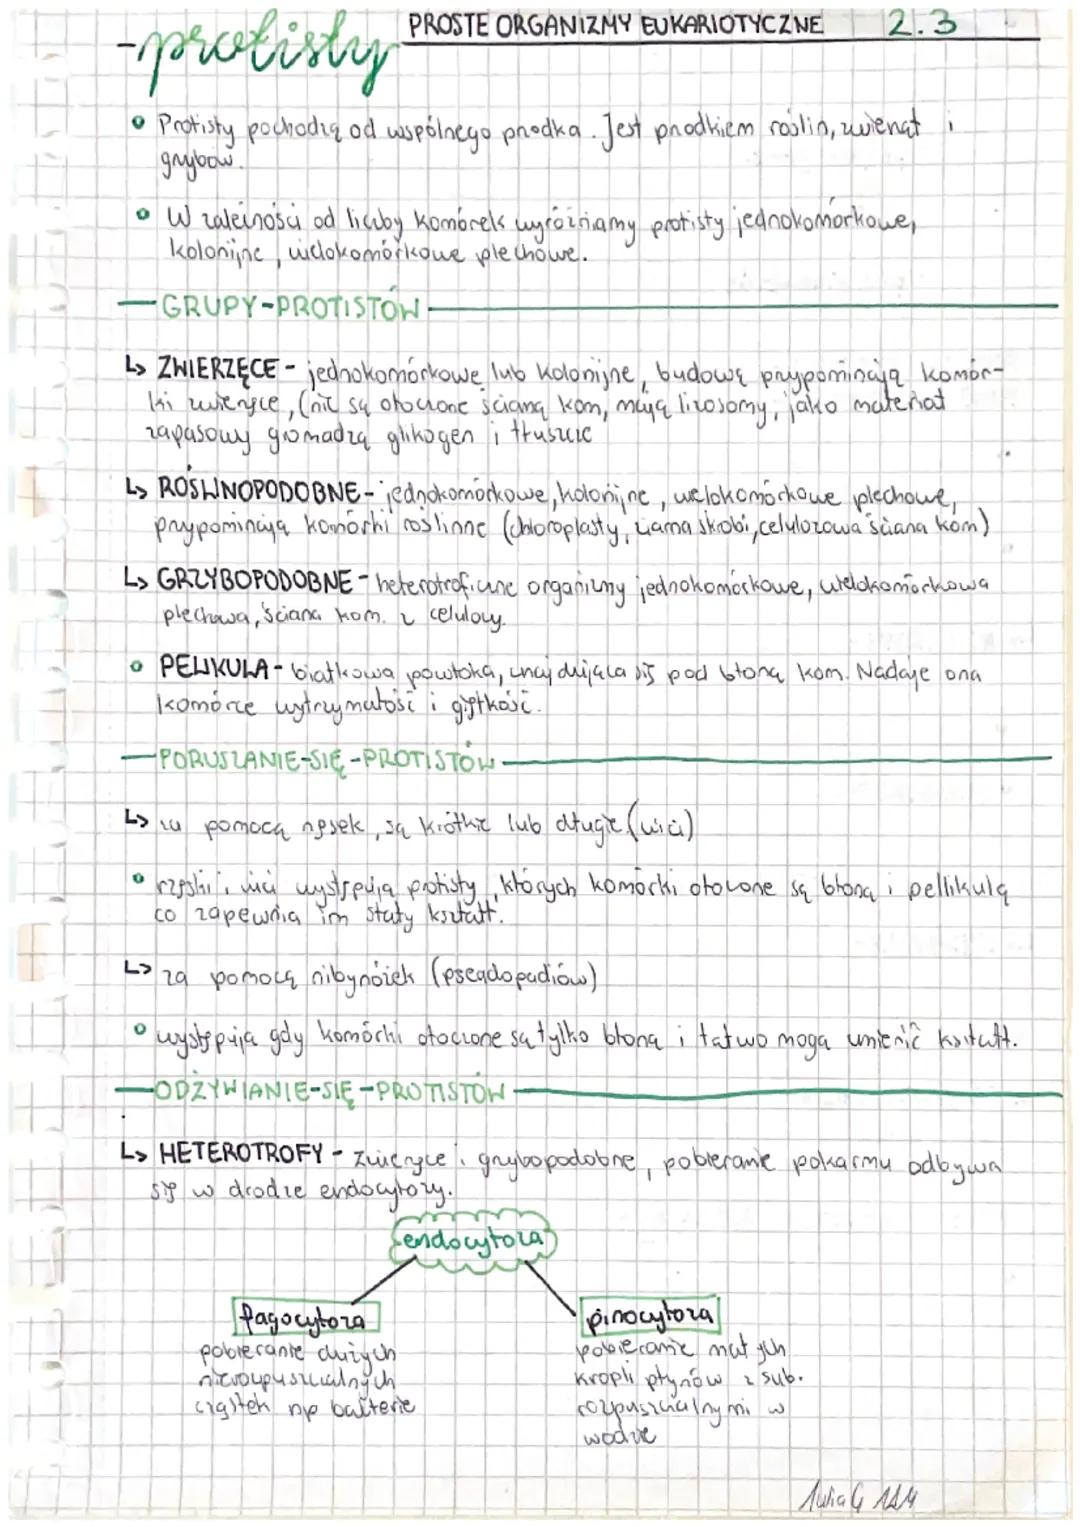 -protisty PROSTE ORGANIZMY EUKARIOTYCZNE 2.3
Protisty pochodzą od wspólnego przodka. Jest przodkiem roślin, zwierząt i
grzybów.
W zależności od liczby komórek wyróżniamy protisty jednokomórkowe,
kolonijne, wielokomórkowe plechowe.
GRUPY-PROTISTÓW
↳ ZWIERZĘCE - jednokomórkowe lub kolonijne, budową przypominają komór-
ki zwierzęce, (nie są otoczone ścianą kom, mają lizosomy, jako materiał
zapasowy gromadzą glikogen i tłuszcze
↳ ROŚLINOPODOBNE - jednokomórkowe, kolonijne, wielokomórkowe plechowe,
przypominają komórki roślinne (chloroplasty, ziarna skrobi, celulozowa ściana kom)
↳ GRZYBOPODOBNE - heterotroficzne organizmy jednokomórkowe, wielokomórkowa
plechowa, ściana kom. z celulozy.
PELIKULA - białkowa powłoka, znajdująca się pod błoną kom. Nadaje ona
komórce wytrzymałość i giętkość.
PORUSZANIE-SIĘ-PROTISTÓW
↳ za pomocą rzęsek, są krótkie lub długie (wici)
rzęski i wici występują protisty, których komórki otoczone są błoną i pellikulą
co zapewnia im stały kształt.
↳ za pomocą nibynóżek (pseudopodiów)
występują gdy komórki otoczone są tylko błoną i łatwo mogą zmienić kształt.
ODŻYWIANIE-SIĘ-PROTISTÓW
↳ HETEROTROFY - zwierzęce i grzybopodobne, pobieranie pokarmu odbywa
się w drodze endocytozy.
endocytoza
fagocytoza
pobieranie dużych
nierozpuszczalnych
cząstek np bakterie
pinocytoza
pobieranie małych
kropli płynów z sub.
rozpuszczalnymi w
wodzie